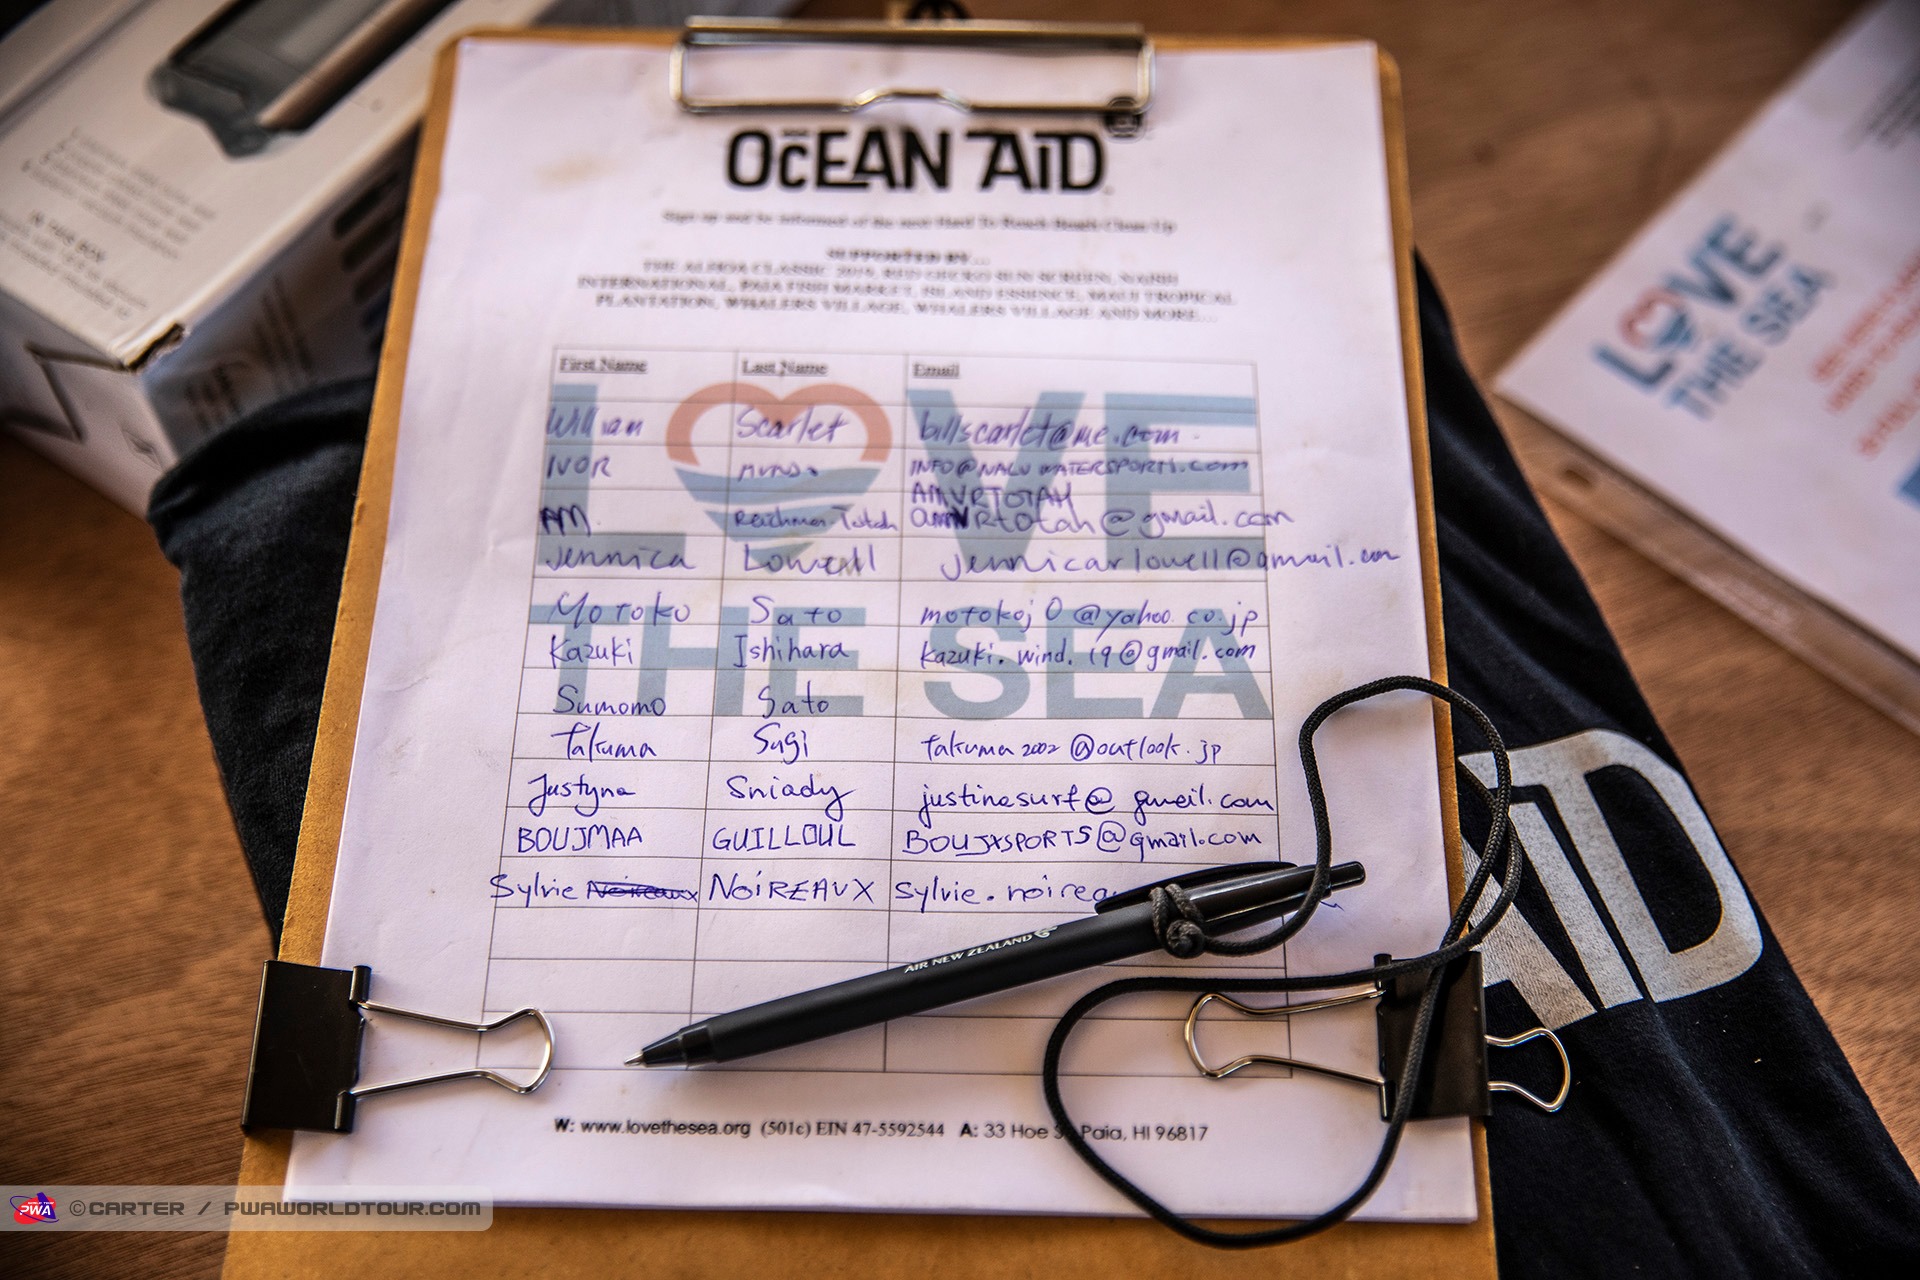 OCEAN AID
Sign up and be informed of the next Hard To Reach Beach Clean Up
SUPPORTED BY...
THE ALOHA CLASSIC 2019, RED GECKO SUN SCREEN, NAISH
INTERNATIONAL, PAIA FISH MARKET, ISLAND ESSENCE, MAUI TROPICAL
PLANTATION, WHALERS VILLAGE, WHALERS VILLAGE AND MORE...
First Name Last Name Email
LOVE
THE SEA
William Scarlet billscarlet@me.com
IVOR INFO@NALUWATERSPORTS.com
AMVRTOTAH
AM. Totah amVRtotah@gmail.com
Jennica Lowell jennicarlowell@gmail.com
Motoko Sato motokoj0@yahoo.co.jp
Kazuki Ishihara kazuki.wind.19@gmail.com
Sumomo Sato
Takuma Sugi takuma2002@outlook.jp
Justyna Sniady justinasurf@gmail.com
BOUJMAA GUILLOUL BOUJXSPORTS@gmail.com
Sylvie Noireaux NOiREAUX Sylvie.noirea
AIR NEW ZEALAND
W: www.lovethesea.org (501c) EIN 47-5592544 A: 33 Hoe S Paia, HI 96817
IN THIS BOX
LOVE
THE SEA
AID
PWA ©CARTER / PWAWORLDTOUR.COM